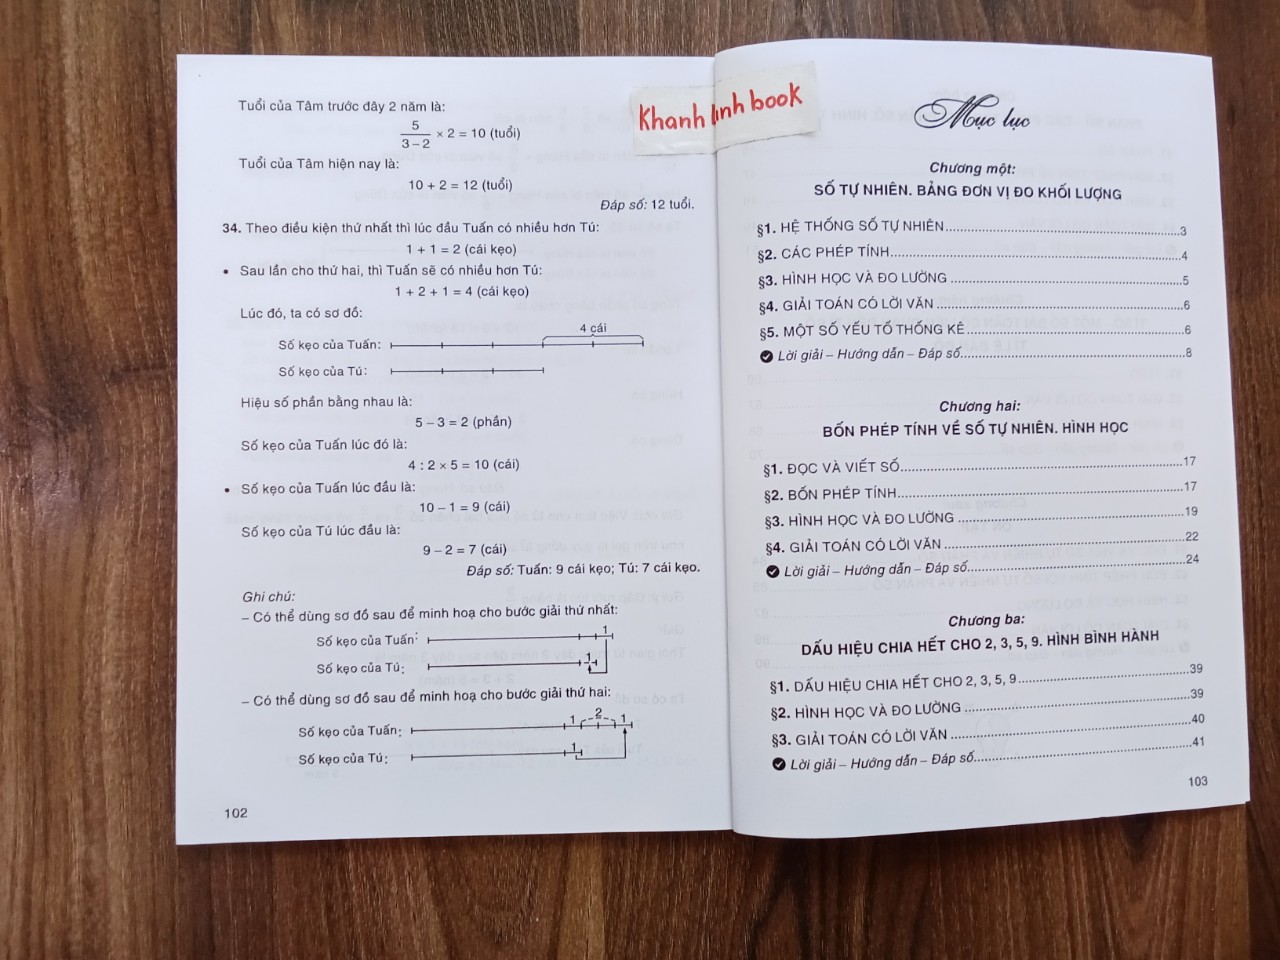 Tuổi của Tâm trước đây 2 năm là:
5
3 – 2
× 2 = 10 (tuổi)
Tuổi của Tâm hiện nay là:
10 + 2 = 12 (tuổi)
Đáp số: 12 tuổi.
34. Theo điều kiện thứ nhất thì lúc đầu Tuấn có nhiều hơn Tú:
1 + 1 = 2 (cái kẹo)
• Sau lần cho thứ hai, thì Tuấn sẽ có nhiều hơn Tú:
1 + 2 + 1 = 4 (cái kẹo)
Lúc đó, ta có sơ đồ:
4 cái
Số kẹo của Tuấn:
Số kẹo của Tú:
Hiệu số phần bằng nhau là:
5 – 3 = 2 (phần)
Số kẹo của Tuấn lúc đó là:
4 : 2 × 5 = 10 (cái)
• Số kẹo của Tuấn lúc đầu là:
10 – 1 = 9 (cái)
Số kẹo của Tú lúc đầu là:
9 – 2 = 7 (cái)
Đáp số: Tuấn: 9 cái kẹo; Tú: 7 cái kẹo.
Ghi chú:
– Có thể dùng sơ đồ sau để minh hoạ cho bước giải thứ nhất:
Số kẹo của Tuấn: 1
Số kẹo của Tú: 1
– Có thể dùng sơ đồ sau để minh hoạ cho bước giải thứ hai:
Số kẹo của Tuấn: 1 2 1
Số kẹo của Tú: 1
102
Khanh linh book
Mục lục
Chương một:
SỐ TỰ NHIÊN. BẢNG ĐƠN VỊ ĐO KHỐI LƯỢNG
§1. HỆ THỐNG SỐ TỰ NHIÊN........................................3
§2. CÁC PHÉP TÍNH........................................4
§3. HÌNH HỌC VÀ ĐO LƯỜNG........................................5
§4. GIẢI TOÁN CÓ LỜI VĂN........................................6
§5. MỘT SỐ YẾU TỐ THỐNG KÊ........................................6
Lời giải – Hướng dẫn – Đáp số........................................8
Chương hai:
BỐN PHÉP TÍNH VỀ SỐ TỰ NHIÊN. HÌNH HỌC
§1. ĐỌC VÀ VIẾT SỐ........................................17
§2. BỐN PHÉP TÍNH........................................17
§3. HÌNH HỌC VÀ ĐO LƯỜNG........................................19
§4. GIẢI TOÁN CÓ LỜI VĂN........................................22
Lời giải – Hướng dẫn – Đáp số........................................24
Chương ba:
DẤU HIỆU CHIA HẾT CHO 2, 3, 5, 9. HÌNH BÌNH HÀNH
§1. DẤU HIỆU CHIA HẾT CHO 2, 3, 5, 9........................................39
§2. HÌNH HỌC VÀ ĐO LƯỜNG........................................39
§3. GIẢI TOÁN CÓ LỜI VĂN........................................40
Lời giải – Hướng dẫn – Đáp số........................................41
103